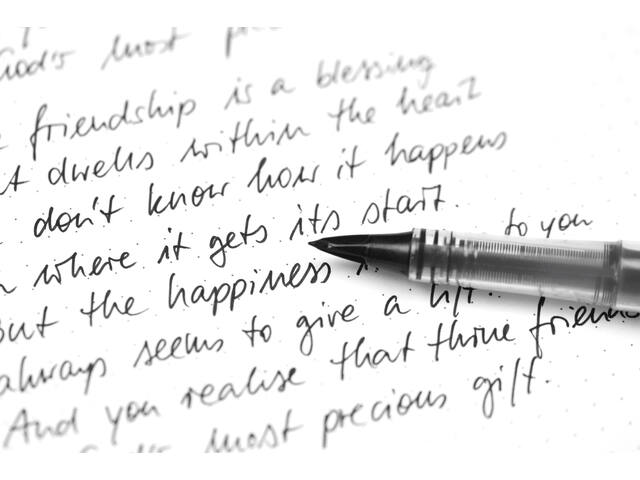 God's most
friendship is a blessing
dwells within the heart
don't know how it happens
where it gets its start.
But the happiness to you
always seems to give a lift.
And you realise that
most precious gift.